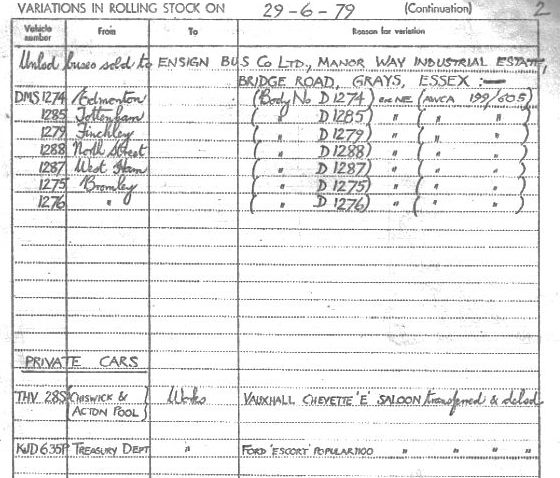 VARIATIONS IN ROLLING STOCK ON 29-6-79 (Continuation) 2
Vehicle number From To Reason for variation
Unlsd buses sold to ENSIGN BUS Co LTD., MANOR WAY INDUSTRIAL ESTATE,
BRIDGE ROAD, GRAYS, ESSEX :—
DMS1274 Edmonton (Body No D1274) ex NE (AWCA 199/605)
1285 Tottenham ( " D1285) " ( " " )
1279 Finchley ( " D1279) " ( " " )
1288 North Street ( " D1288) " ( " " )
1287 West Ham ( " D1287) " ( " " )
1275 Bromley ( " D1275) " ( " " )
1276 " ( " D1276) " ( " " )
PRIVATE CARS
THV 28S (CHISWICK & ACTON POOL) Works VAUXHALL CHEVETTE 'E' SALOON transferred & delsd
KJD 635P TREASURY DEPT " FORD 'ESCORT' POPULAR 1100 " " "